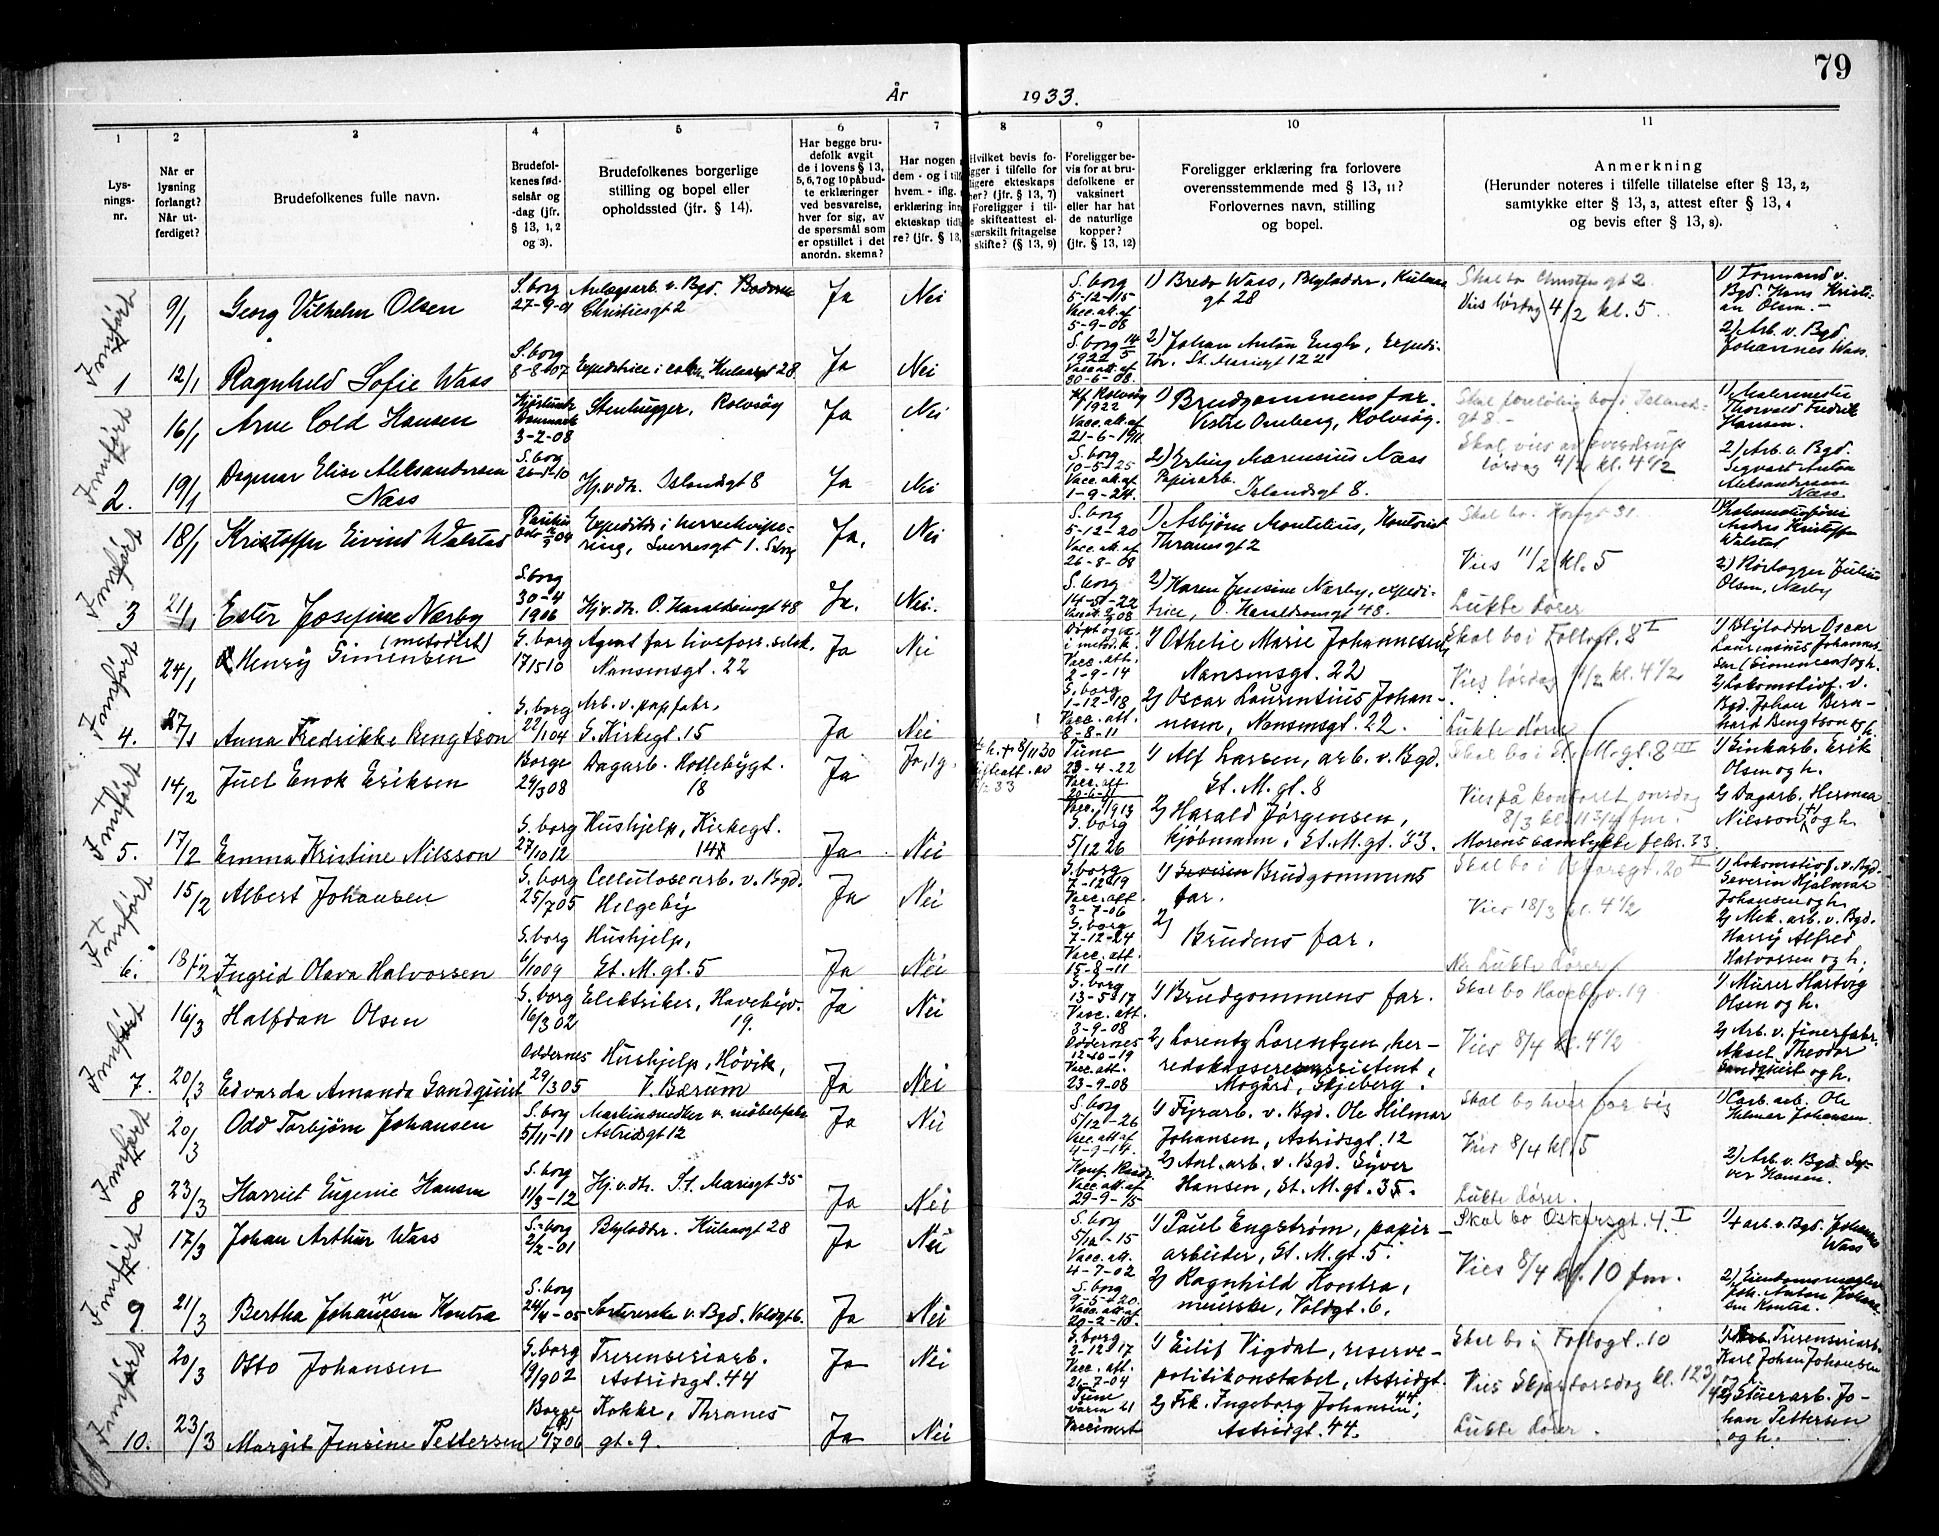 79
År 1933.
1
2
3
4
5
6
7
8
9
10
11
Lys-
nings-
nr.
Når er
lysning
forlangt?
Når ut-
ferdiget?
Brudefolkenes fulle navn.
Brudefol-
kenes fød-
selsår og
-dag (jfr.
§ 13, 1, 2
og 3).
Brudefolkenes borgerlige
stilling og bopel eller
opholdssted (jfr. § 14).
Har begge bru-
defolk avgit
de i lovens § 13,
5, 6, 7 og 10 påbud-
te erklæringer
ved besvarelse,
hver for sig, av
de spørsmål som
er opstillet i det
anordn. skema?
Har nogen
dem - og i til
hvem - iflg.
erklæring inn
ekteskap tid
re? (jfr. § 13,
Hvilket bevis fo-
gger i tilfelle for
ligere ekteskaps
her? (jfr. § 13, 7)
Foreligger i til-
e skifteattest el-
særskilt fritagelse
skifte? (§ 13, 9)
Foreligger be-
vis for at brud-
efolkene er
vaksinert
eller har hat
de naturlige
kopper?
(jfr. § 13, 12)
Foreligger erklæring fra forlovere
overensstemmende med § 13, 11?
Forlovernes navn, stilling
og bopel.
Anmerkning
(Herunder noteres i tilfelle tillatelse efter § 13, 2,
samtykke efter § 13, 3, attest efter § 13, 4
og bevis efter § 13, 8).
Innført
1
9/1
Georg Vilhelm Olsen
S.borg
27-9-01
Anlægsarb. v. Bgd.
Christiesgt 2
Ja
Nei
S.borg
5-12-15
Vacc.att.af
5-9-08
1) Bredo Wass, Blyladder, Kulaas
gt 28
Skal bo Christiesgt 2.
Vies lørdag 4/2 kl. 5
1) Formand v.
Bgd. Hans Kristi-
an Olsen.
12/1
Ragnhild Sofie Wass
S.borg
8-8-07
Expeditrice i Kulaasgt 28.
Ja
Nei
S.borg 14/5
1922
Vacc.att.af
30-6-08.
2) Johan Anton Engh, Expedi-
tør. St. Mariegt 122
2) Arb. v. Bgd
Johannes Wass.
Innført
2.
16/1
Arne Cold Hansen
Danmark
3-2-08
Stenhugger, Rolvsøy
Ja
Nei
Kf. Rolvsøy
1922
Vacc.att.af
21-6-1911
1) Brudgommens far.
Vestre Omberg, Rolvsøy.
Skal foreløbig bo i Islands-
gt 8. -
Skal vies av Sverdrup
lørdag 4/2 kl. 4 1/2
1) Malermester
Thorvald Fredrik
Hansen.
19/1
Dagmar Elise Aleksandersen
Næss
S.borg
26-5-10
Hj.v.dr. Islandsgt 8
Ja
Nei
S.borg
10-5-25
Vacc.att.af
1-9-24.
2) Erling Marensius Næss
Papirarb.
Islandsgt 8.
2) Arb. v. Bgd.
Segvart Anton
Aleksandersen
Næss.
Innført
3
18/1
Kristoffer Eivind Walstad
Paulus
Oslo 04
Expeditør i herreekvipe-
ring, Sverresgt 1. S.borg
Ja.
Nei
S.borg
5-12-20
Vacc.att.af
26-8-08
1) Asbjørn Montelius, Kontorist
Thranesgt 2
Skal bo. Kongsgt 31.
Vies 11/2 kl. 5
Andres Kristoffer
Walstad
21/1
Ester Josefine Nærby
S.borg
30-4
1906
Hj.v.dr. O. Haraldsensgt 48
Ja.
Nei.
S.borg
14-5-22
2) Karen Jensine Nærby, expedi-
trice, O. Haraldsonsgt 48.
Lukte dører
2) Rørlegger Julius
Olsen, Nærby
Innført
4.
24/1
(metodist)
Henry Simensen
S.borg
17 5 10
Agent for livsfors.selsk.
Nansensgt. 22
Ja
Nei
Døpt og
i metod.k.
Vacc. att.
2-9-14
1) Othelie Marie Johannesen,
Nansensgt. 22
Skal bo i Follogt. 8 I
Vies lørdag 11/2 kl. 4 1/2
1) Blylodder Oscar
Laurentius Johannes-
sen (Simensen) og h.
27/1
Anna Fredrikke Bengtson
S.borg
22/1 04
Arb. v. papfabr.
G. Kirkegt. 15
Ja
Nei
S.borg
1-12-18
Vacc. att.
8-8-11
2) Oscar Laurentius Johan-
nesen, Nansensgt. 22.
Lukte dører
2) Lokomotivf. v.
Bgd. Johan Bern-
hard Bengtson og h.
Innført
5.
14/2
Juel Enok Eriksen
Borge
29/3 08
Dagarb. Kollebygt.
18
Ja
Ja, 1 g.
h. + 8/11 30
Tune
23-4-22
Vacc. att
20-6-11
1) Alf Larsen, arb. v. Bgd.
St. M. gt. 8
Skal bo i St. M. gt. 8 III
Vies på kontoret onsdag
8/3 kl. 11 3/4 fm.
1) Erik
Olsen og h.
17/2
Emma Kristine Nilsson
S.borg
27/10 12
Hushjelp, Kirkegt.
Ja
Nei
Vacc. 1/1913
S.borg
5/12 26
2) Harald Jørgensen,
kjøbmann i St. M. gt. 33.
Morens samtykke febr. 33
2) Dagarb. Herman
Nilsson + og h.
Innført
6.
15/2
Albert Johansen
S.borg
25/7 05
Cellulosearb. v. Bgd.
Helgeby
Ja
Nei
S.borg
7-12-19
Vacc. att.
3-7-06
1) Severin Brudgommens
far.
Skal bo i Oskarsgt. 20 II
Vies 18/3 kl. 4 1/2
1) Lokomotivf. v. Bgd.
Severin Hjalmar
Johansen og h.
18/2
Ingrid Olava Halvorsen
S.borg
6/10 09
Hushjelp,
St. M. gt. 5
Ja
Nei
S.borg
7-12-24
Vacc. att.
15-8-11
2)
Brudens far.
Lukte dører
2) Mek. arb. v. Bgd.
Harry Alfred
Halvorsen og h.
Innført
7.
16/3
Halfdan Olsen
S.borg
16/3 02
Elektriker, Havebyv.
19.
Ja
Nei
S.borg
13-5-17
Vacc. att.
3-9-08
1) Brudgommens far.
Skal bo Havebyv. 19
Vies 8/4 kl. 4 1/2
1) Murer Hartvig
Olsen og h.
20/3
Edvarda Amanda Sandquist
Oddernes
29/3 05
Hushjelp, Høvik,
V. Bærum
Ja
Nei
Oddernes
12-10-19
Vacc. att.
23-9-08
2) Lorentz Lorentzen, her-
redskasserassistent,
Mogård, Skjeberg.
2) Arb. v. finerfabr.
Aksel Theodor
Sandquist og h.
Innført
8
20/3
Odd Torbjørn Johansen
S.borg
5/11-11
v. møbelfabr.
Astridsgt 12
Ja
Nei
S.borg
5/12-26
Vacc.att.af
4-9-14.
1) Fyrarb. v. Bgd. Ole Hilmar
Johansen, Astridsgt. 12
Skal bo hver for sig
Vies 8/4 kl. 5
1) Carb. arb. Ole
Hilmar Johansen.
23/3
Harriet Eugenie Hansen
S.borg
11/3-12
Hj.v.dr. St. Mariegt 35
Ja
Nei
Vacc.att.af
29-9-15
2) Anl. arb. v. Bgd. Syver
Hansen, St. M. gt. 35.
Lukte dører.
2) Arb. v. Bgd. Sy-
ver Hansen.
Innført
9
17/3
Johan Arthur Wass
S.borg
2/2-01
Blyladder. Kulaasgt 28
Ja
Nei
S.borg
5/12-15
Vacc. att.
4-7-02
1) Paul Engstrøm, papir-
arbeider, St. M. gt. 5.
Skal bo Oskarsgt. 4. I
Vies 8/4 kl. 10 fm.
1) arb. v. Bgd. Johannes
Wass
21/3
Bertha Johansen Kontra
S.borg
24/4-05
Sortererske v. Bgd. Voldgt 6.
Ja
Nei
S.borg
9-5-20
Vacc.att.af
20-2-10.
2) Ragnhild Kontra,
Voldgt. 6.
2) Eiendomsmægler
Joh. Anton Johan-
sen Kontra.
Innført
10.
20/3
Otto Johansen
S.borg
19/9 02
Trerenseriarb.
Astridsgt. 44
Ja
Nei
S.borg
2-12-17
Vacc. att.
21-7-04
1) Eilif Vigdal, reserve-
politikonstabel, Astridgt.
44
Skal bo i Follogt. 10
Vies Skjærtorsdag kl. 12 3/4
1) Arb. Trerenseriarb.
Karl Johan Johansen
og h.
23/3
Margit Jensine Pettersen
Borge
6/7 06
Kokke, Thranes
gt. 9.
Ja
Nei
Tune
våren 21
Vaccinert
2) Frk. Ingeborg Johansen,
Astridgt. 44.
Lukte dører.
2) Stuerarb. Jo-
han Pettersen
og h.